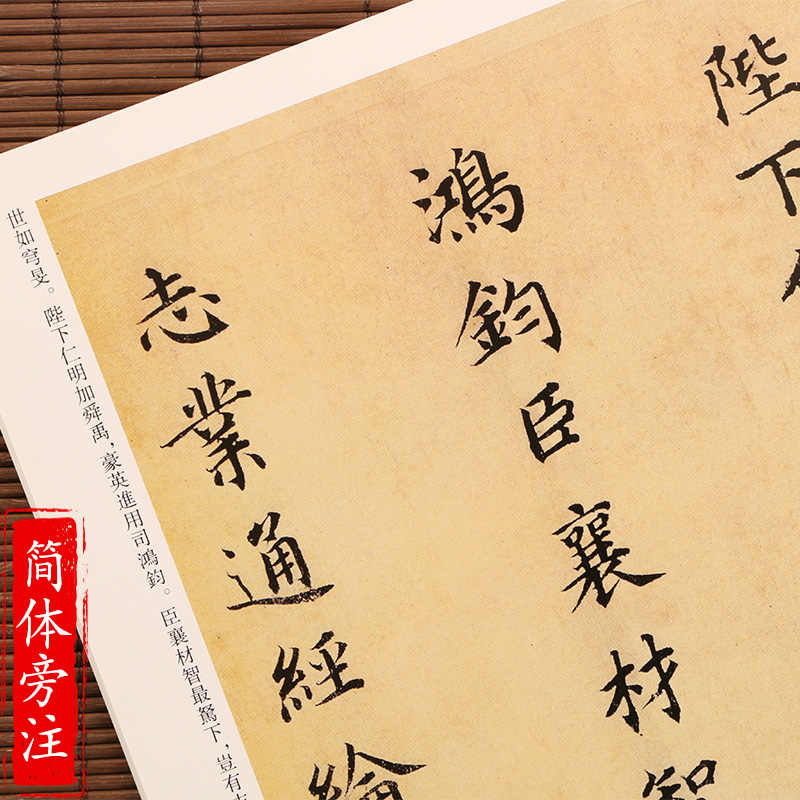 陛下
鴻鈞臣襄材智
志業通經綸
世如穹旻。陛下仁明加舜禹，豪英進用司鴻鈞。臣襄材智最駑下，豈有
简体旁注